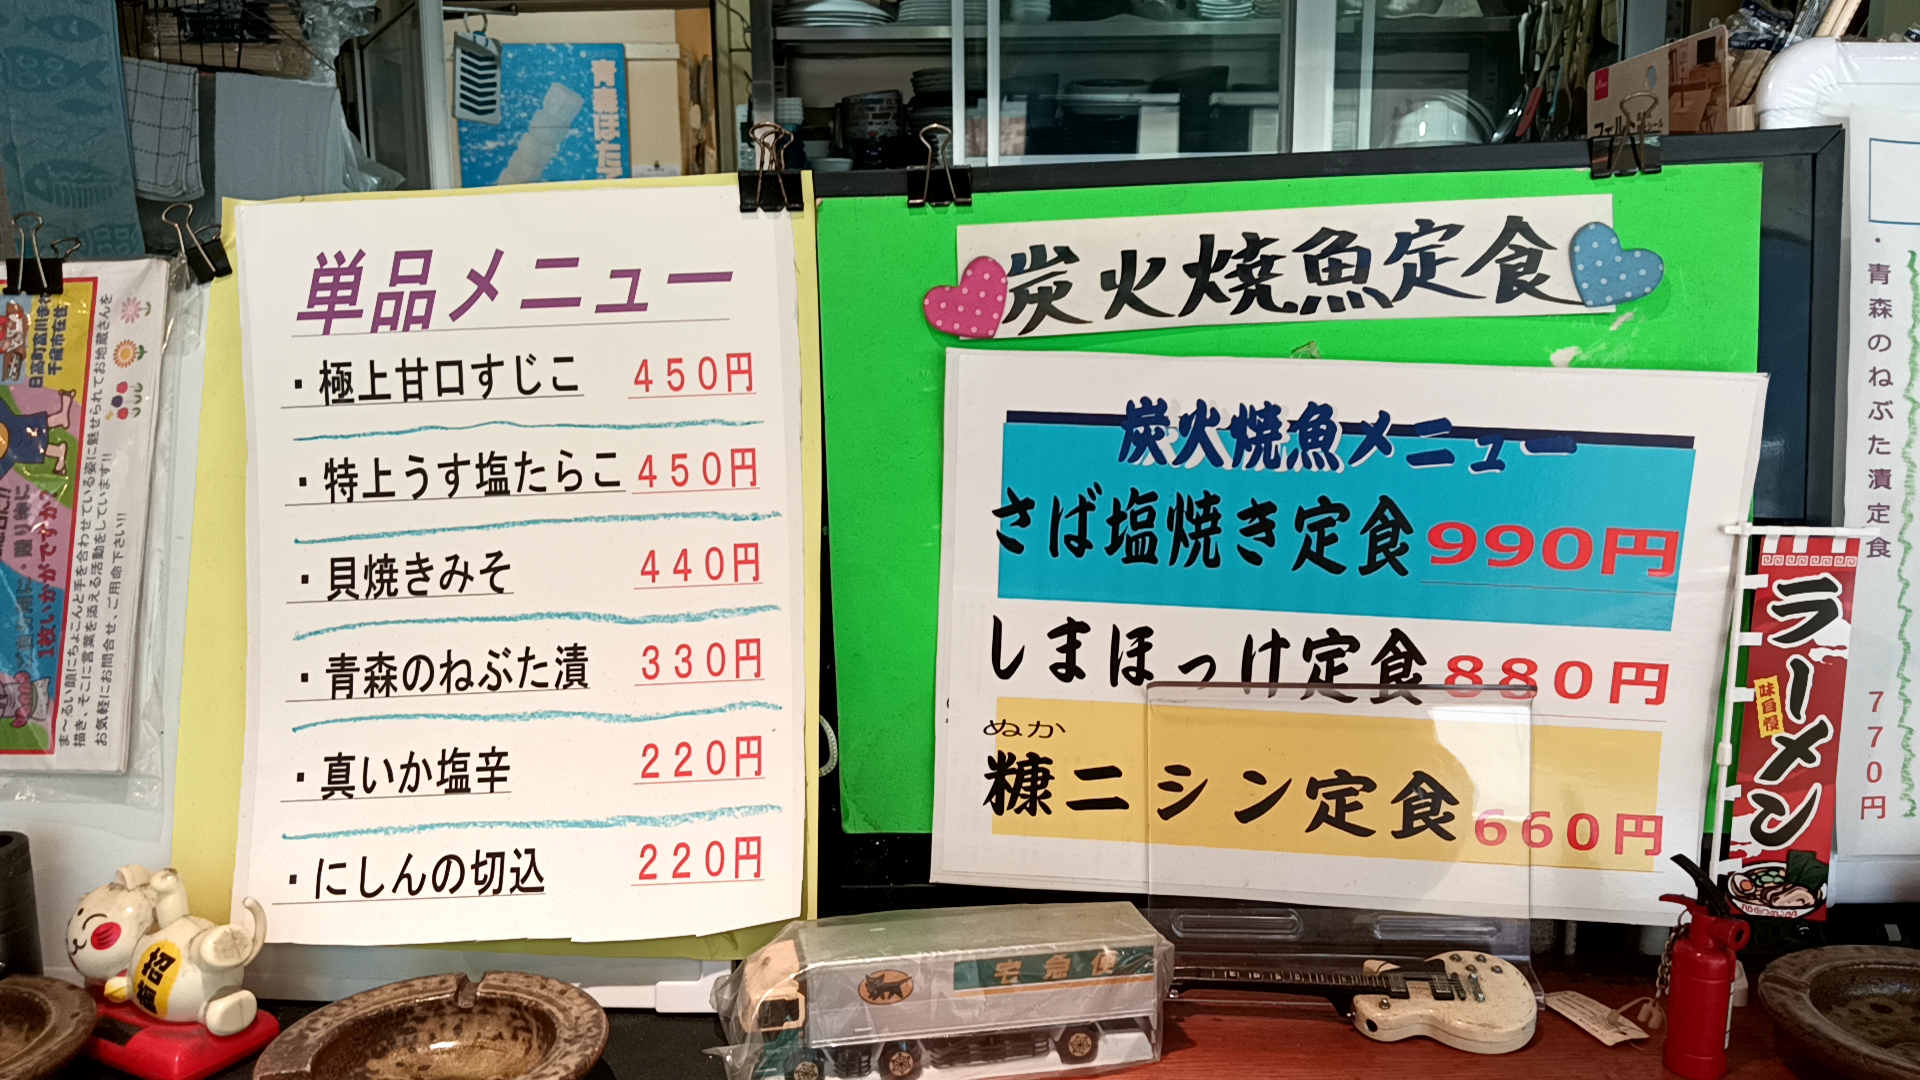 青森ほたて
単品メニュー
・極上甘口すじこ 450円
・特上うす塩たらこ 450円
・貝焼きみそ 440円
・青森のねぶた漬 330円
・真いか塩辛 220円
・にしんの切込 220円
炭火焼魚定食
炭火焼魚メニュー
さば塩焼き定食 990円
しまほっけ定食 880円
ぬか
糠ニシン定食 660円
ラーメン
味自慢
・青森のねぶた漬定食 770円
千歳市在住
ま～るい顔にちょこんと手を合わせている姿に魅せられてお地蔵さんを
描き、そこに言葉を添える活動をしています!!
お気軽にお問合せ、ご用命下さい!!
1枚いかがですか
招
宅急便